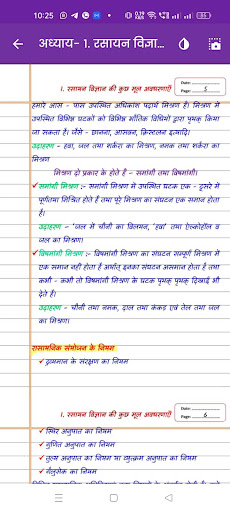 10:25
अध्याय- 1. रसायन विज्ञा...
१. रसायन विज्ञान की कुछ मूल अवधारणाएँ
Date:
Page: 5
हमारे आस - पास उपस्थित अधिकांश पदार्थ मिश्रण हैं। मिश्रण में
उपस्थित विभिन्न घटकों को विभिन्न भौतिक विधियों द्वारा पृथक् किया
जा सकता है। जैसे - छानना, आसवन, क्रिस्टलन इत्यादि।
उदाहरण - हवा, जल तथा शर्करा का मिश्रण, नमक तथा शर्करा का
मिश्रण
मिश्रण दो प्रकार के होते हैं - समांगी तथा विषमांगी।
✓ समांगी मिश्रण :- समांगी मिश्रण में उपस्थित घटक एक - दूसरे में
पूर्णतया मिश्रित होते हैं तथा पूरे मिश्रण का संघटन एक समान होता
है।
उदाहरण - 'जल में चीनी का विलयन, 'हवा' तथा ऐल्कोहॉल व
जल का मिश्रण।
✓ विषमांगी मिश्रण :- विषमांगी मिश्रण का संघटन सम्पूर्ण मिश्रण में
एक समान नहीं होता है अर्थात् इनका संघटन असमान होता है तथा
कभी - कभी तो विषमांगी मिश्रण के घटक पृथक् पृथक् दिखाई भी
देते हैं।
उदाहरण - चीनी तथा नमक, दाल तथा कंकड़ एवं तेल तथा जल
का मिश्रण।
रासायनिक संयोजन के नियम
✓ द्रव्यमान के संरक्षण का नियम
१. रसायन विज्ञान की कुछ मूल अवधारणाएँ
Date:
Page: 6
✓ स्थिर अनुपात का नियम
✓ गुणित अनुपात का नियम
✓ तुल्य अनुपात का नियम या व्युत्क्रम अनुपात का नियम
✓ गैलुसेक का नियम